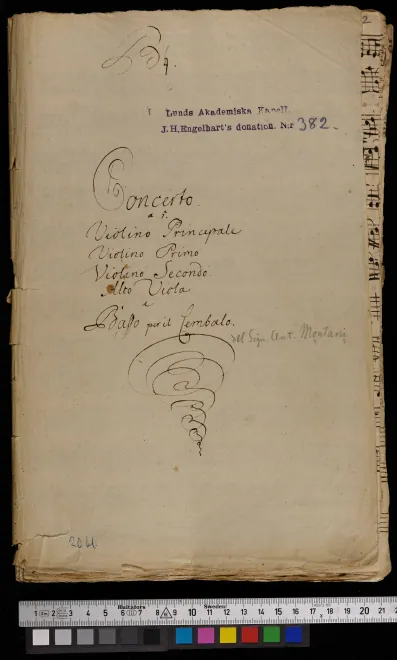 2
Lunds Akademiska Kapell.
J.H.Engelhart's donation. Nr 382.
Concerto.
a 5.
Violino Principale
Violino Primo
Violino Secondo.
Alto Viola
e
Basso per il Cembalo.
del Sign. Ant. Montani
Hultafors Sweden
1 2 3 4 5 6 7 8 9 10 11 12 13 14 15 16 17 18 19 20 21